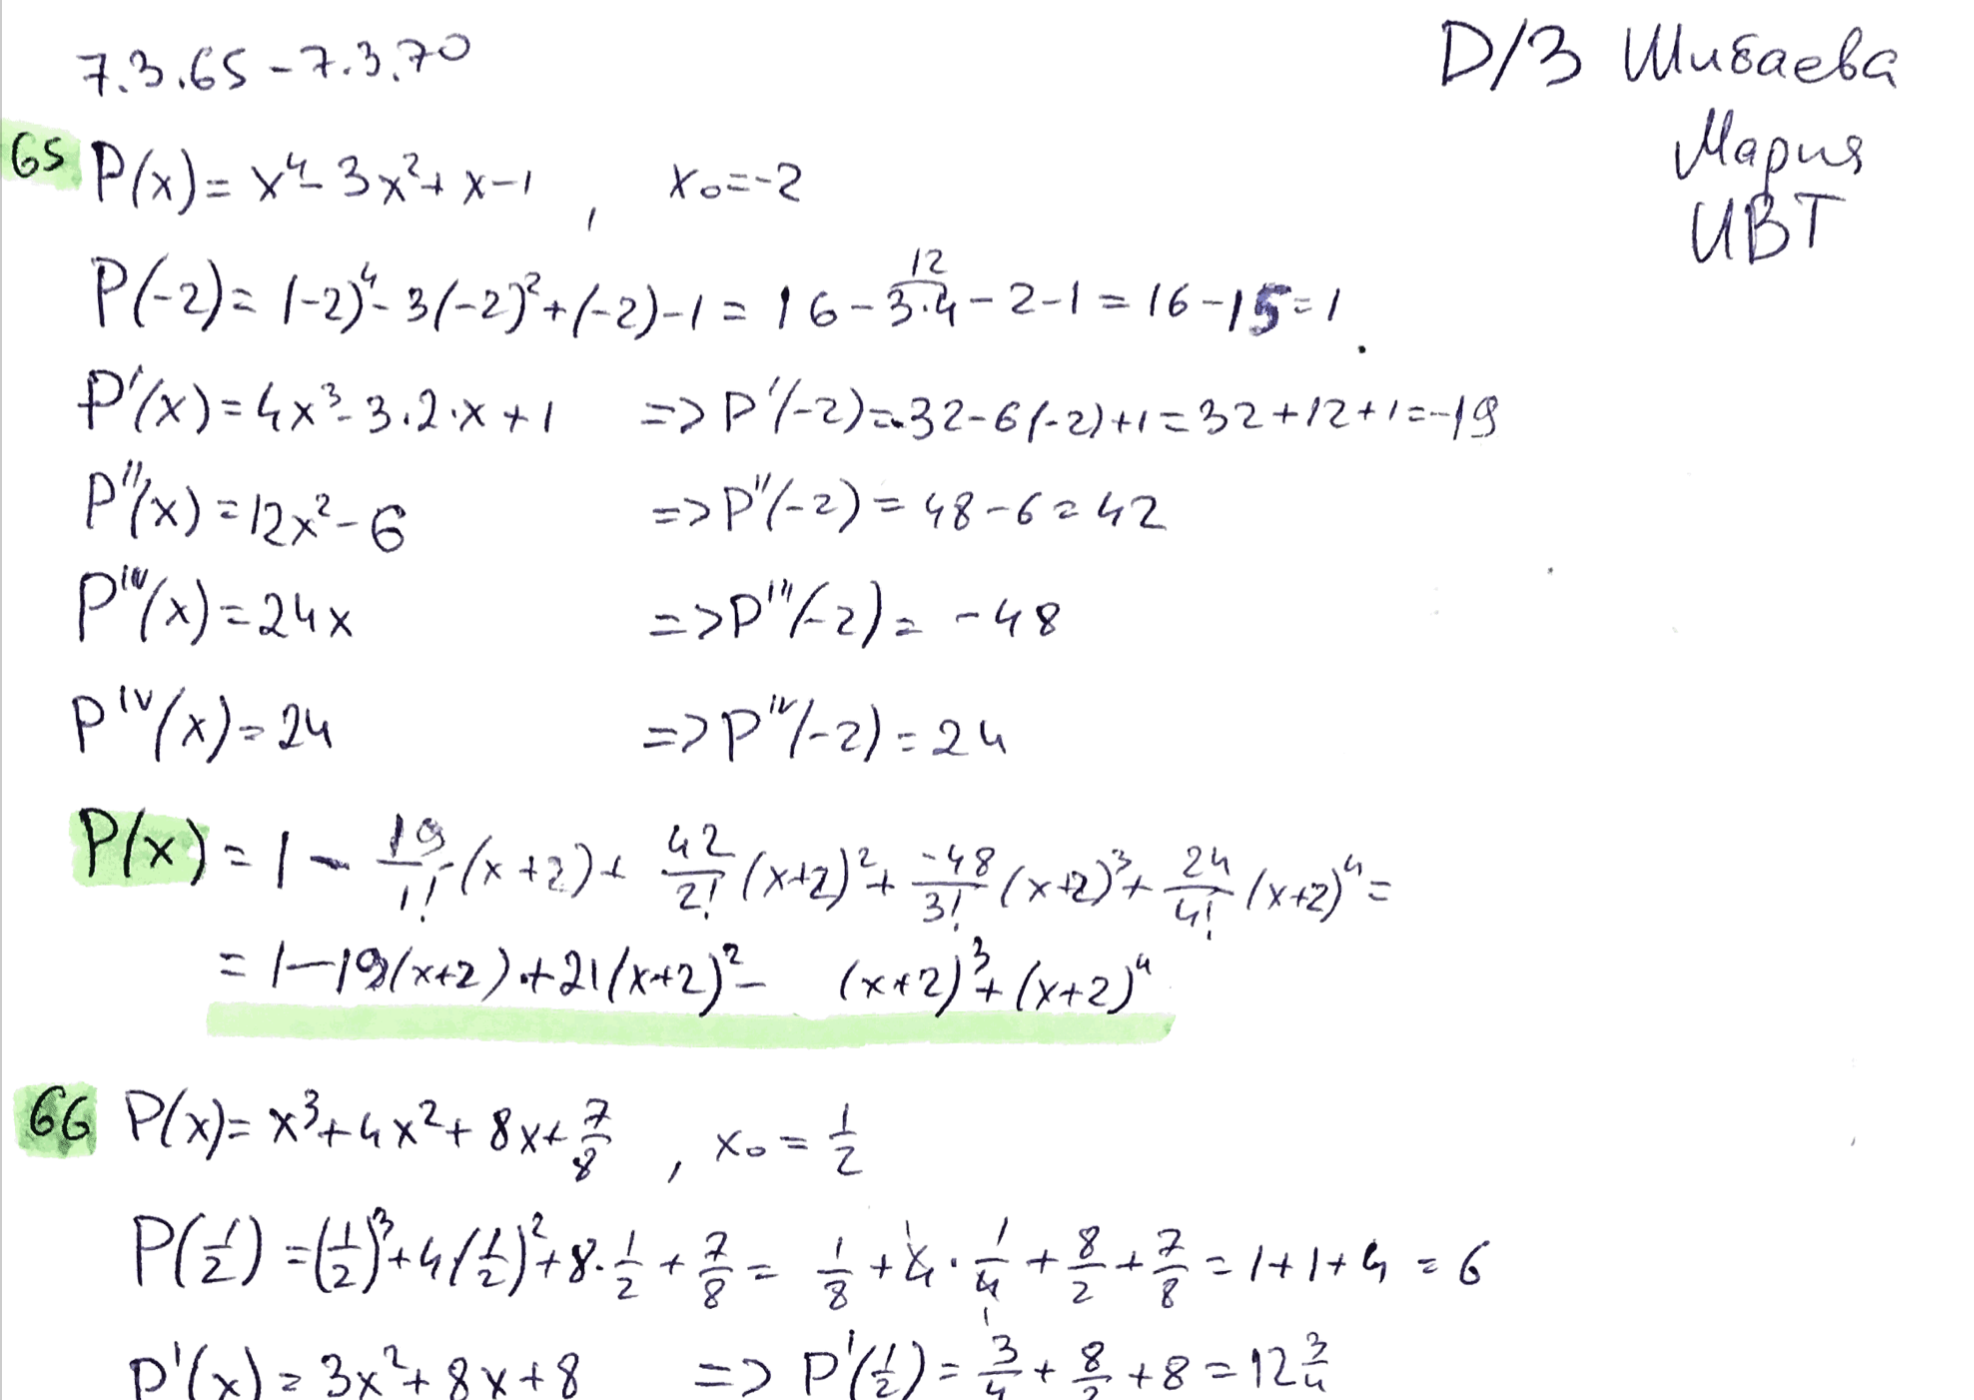 7.3.65 - 7.3.70
D/З Шибаева
Мария
ИВТ
65 P(x) = x⁴ - 3x² + x - 1 , x₀ = -2
P(-2) = (-2)⁴ - 3(-2)² + (-2) - 1 = 16 - 3·4 (12) - 2 - 1 = 16 - 15 = 1
P'(x) = 4x³ - 3·2·x + 1 => P'(-2) = -32 - 6(-2) + 1 = 32 + 12 + 1 = -19
P''(x) = 12x² - 6 => P''(-2) = 48 - 6 = 42
P'''(x) = 24x => P'''(-2) = -48
P^IV(x) = 24 => P^IV(-2) = 24
P(x) = 1 - 19/1! (x+2) + 42/2! (x+2)² + -48/3! (x+2)³ + 24/4! (x+2)⁴ =
= 1 - 19(x+2) + 21(x+2)² - (x+2)³ + (x+2)⁴
66 P(x) = x³ + 4x² + 8x + 7/8 , x₀ = 1/2
P(1/2) = (1/2)³ + 4(1/2)² + 8·1/2 + 7/8 = 1/8 + 4·1/4 + 8/2 + 7/8 = 1 + 1 + 4 = 6
P'(x) = 3x² + 8x + 8 => P'(1/2) = 3/4 + 8/2 + 8 = 12 3/4